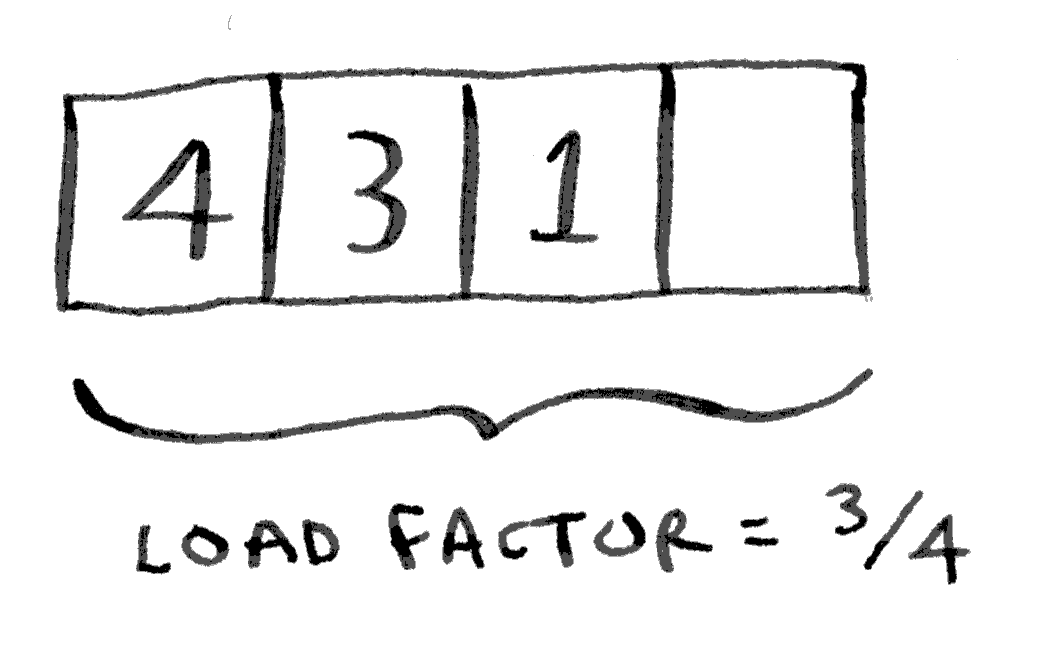 4 3 1
LOAD FACTOR = 3/4